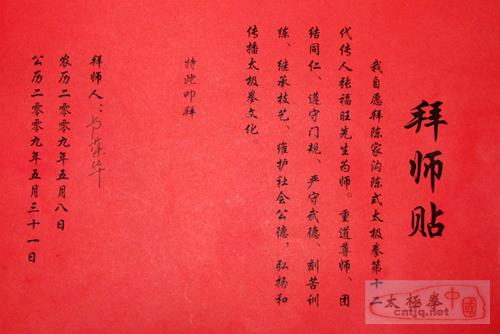 拜师贴
我自愿拜陈家沟陈式太极拳第十二
代传人张福旺先生为师。重道尊师、团
结同仁、遵守门规、严守武德、刻苦训
练、继承技艺、维护社会公德,弘扬和
传播太极拳文化。
特此叩拜
拜师人:荣华
农历二零零九年五月八日
公历二零零九年五月三十一日
太極拳中國
cntjq.net